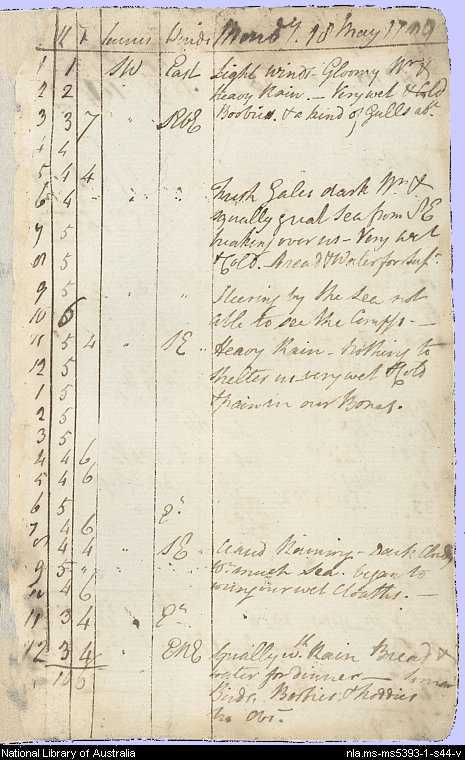 K F Courses Winds Mondy. 18 May 1789
1 1 SW East Light winds Gloomy Wr. &
2 2 Heavy Rain. — Very wet & Cold
3 3 7 " SEbE Boobies. & a kind of Gulls abt.
4 4
5 4 4
6 4 " " Fresh Gales dark Wr. &
squally great Sea from SE
7 5 breaking over us — Very wet
8 5 & Cold. Bread & Water for Supr.
9 5 " " Steering by the Sea not
10 6 able to see the Compss. —
11 5 4 " SE Heavy Rain — Nothing to
12 5 shelter us very wet & Cold
1 5 & pain in our Bones.
2 5
3 5
4 4 6
5 4 6
6 5 Do.
7 4 6
8 4 4 " SE Raining — dark Cloudy
9 5 " Wr. much Sea. began to
10 4 6 wring our wet Cloaths. —
11 3 4 " Do.
12 3 4 " ENE Squally wth. Rain Bread &
106 water for dinner — 
Birds, Boobies & Noddies
No Obsn.
National Library of Australia nla.ms-ms5393-1-s44-v